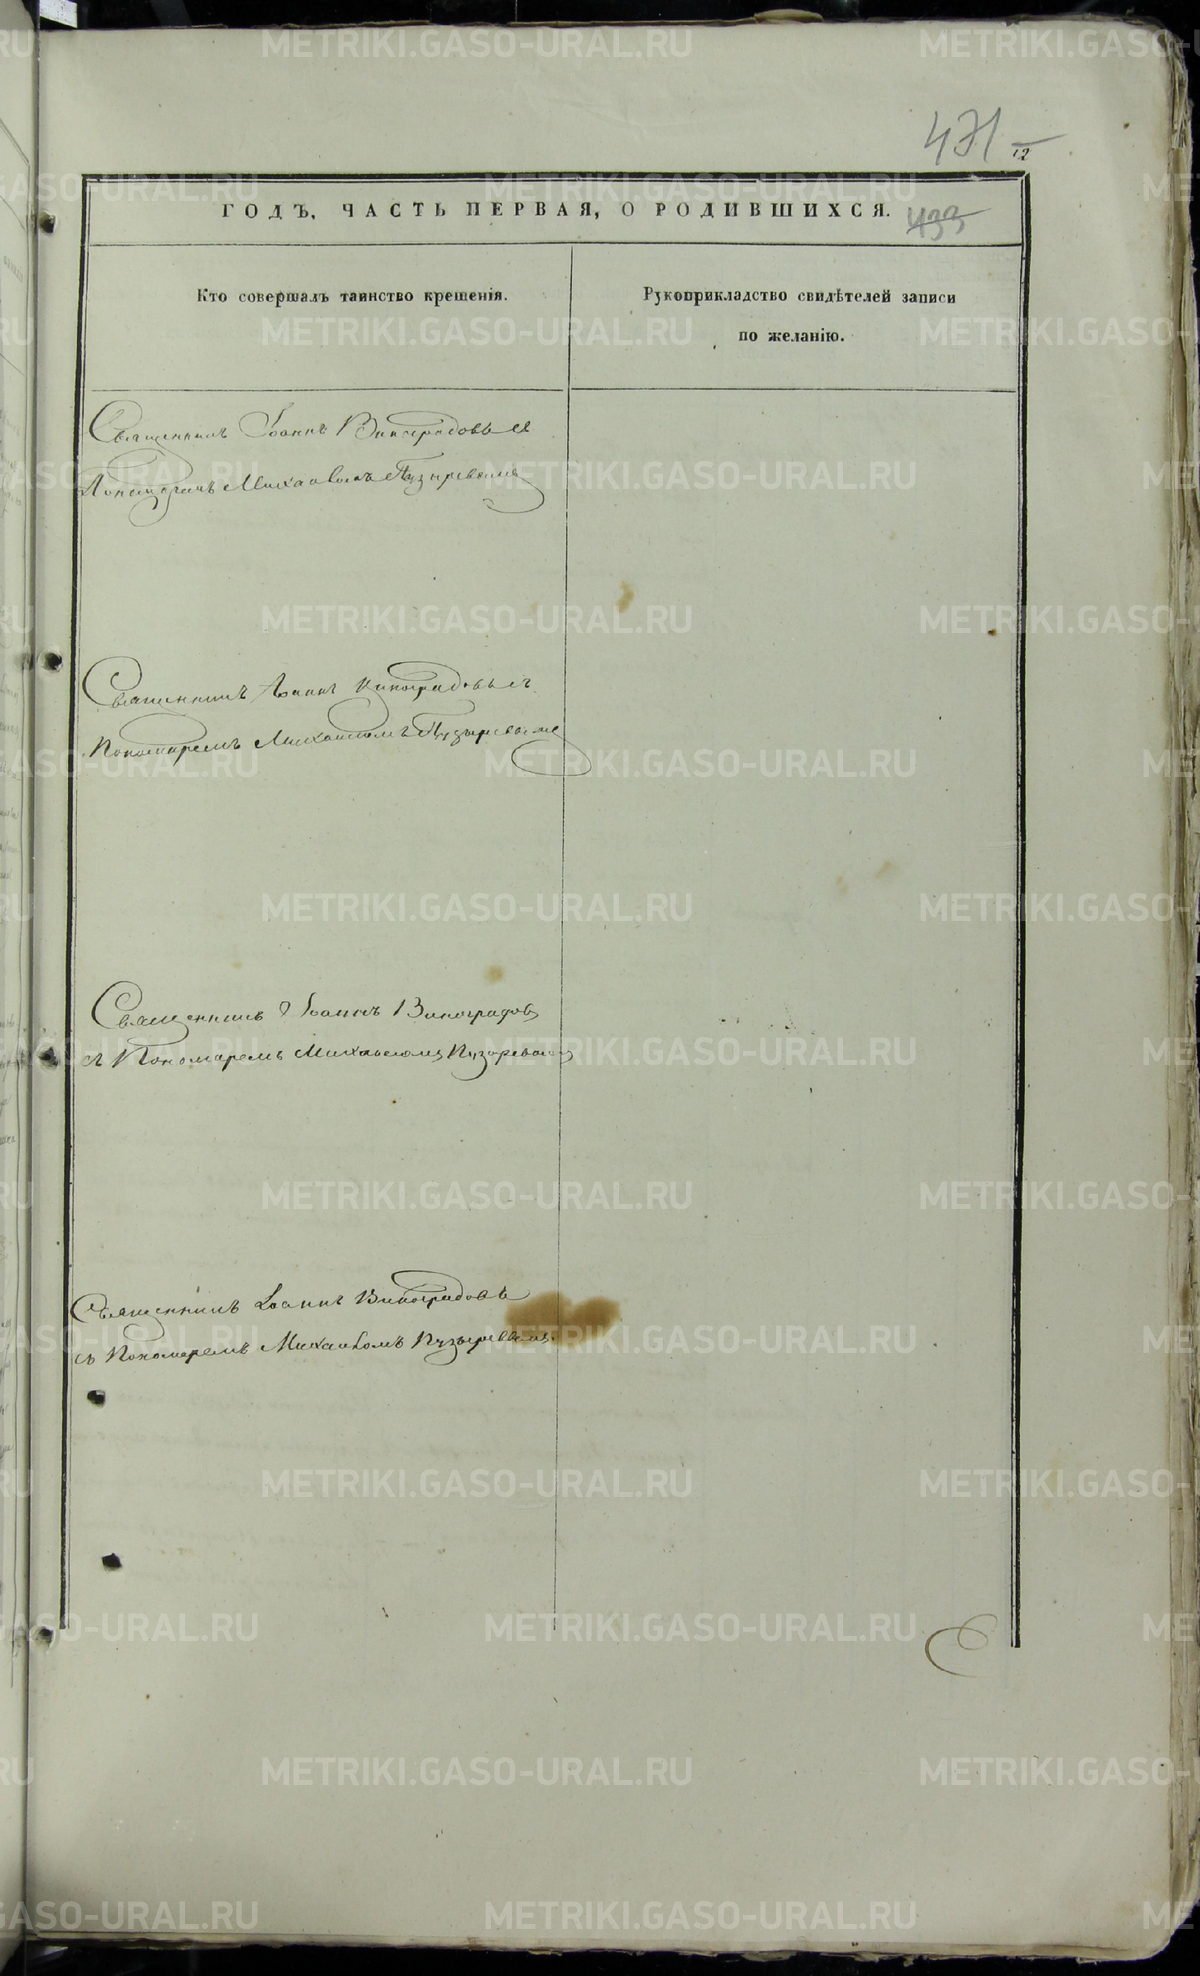 471
12
ГОДЪ, ЧАСТЬ ПЕРВАЯ, О РОДИВШИХСЯ.
433
Кто совершалъ таинство крещенія.
Рукоприкладство свидѣтелей записи
по желанію.
Священникъ Іоаннъ Виноградовъ съ
Пономаремъ Михаиломъ Пузыревымъ
Священникъ Іоаннъ Виноградовъ съ
Пономаремъ Михаиломъ Пузыревымъ
Священникъ Іоаннъ Виноградовъ
съ Пономаремъ Михаиломъ Пузыревымъ
Священникъ Іоаннъ Виноградовъ
съ Пономаремъ Михаиломъ Пузыревымъ
METRIKI.GASO-URAL.RU